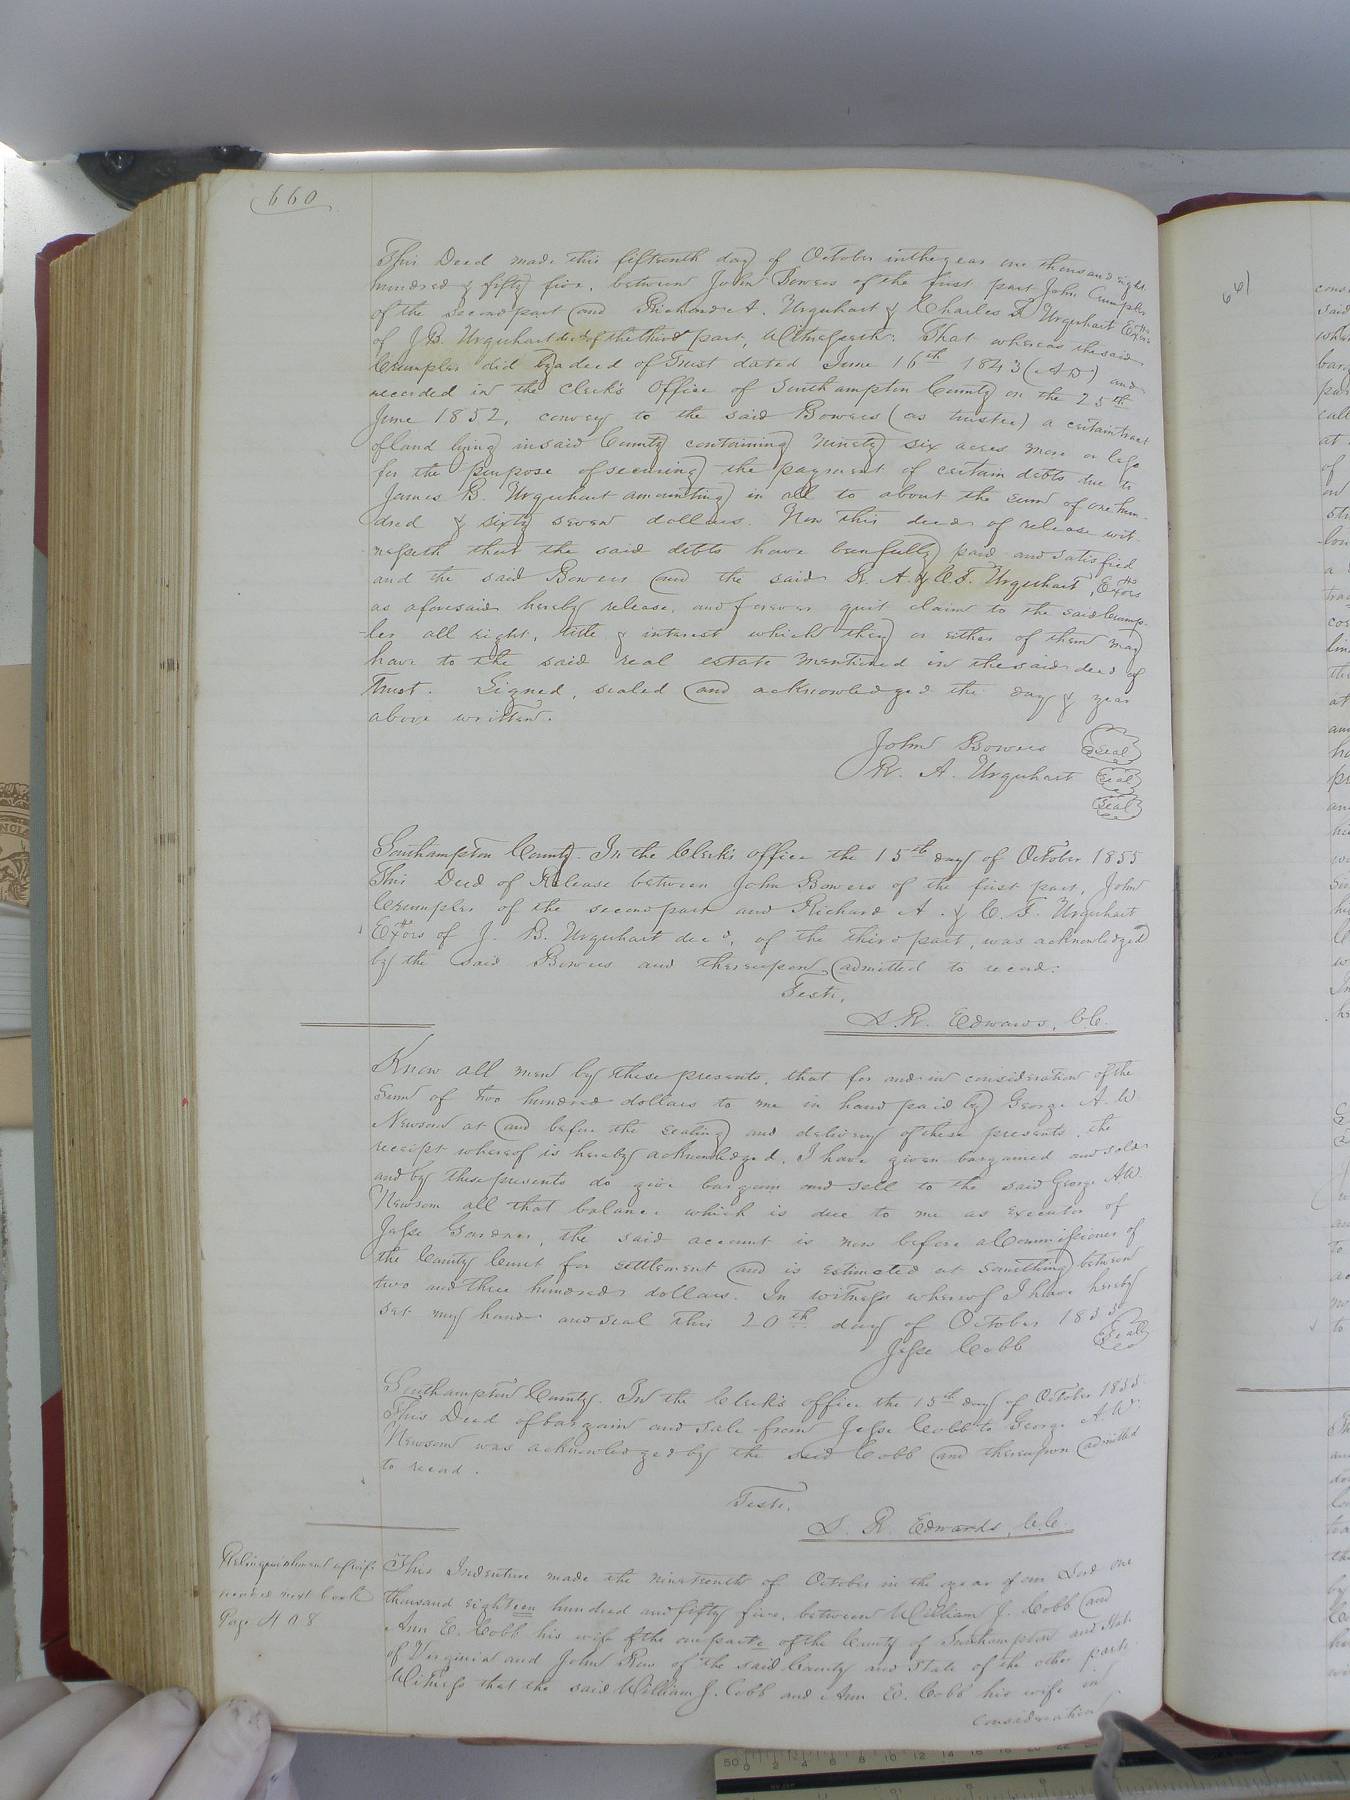 660
This Deed made this fifteenth day of October in the year one thousand eight
hundred & fifty five, between John Bowers of the first part John Crumpler
of the second part and Richard A. Urquhart & Charles F Urquhart Exors
of J. B. Urquhart decd of the third part, Witnesseth: That whereas the said
Crumpler did by a deed of Trust dated June 16th 1843 (AD) and
recorded in the Clerk's Office of Southampton County on the 25th
June 1852, convey to the said Bowers (as trustee) a certain tract
of land lying in said County containing Ninety six acres more or less
for the purpose of securing the payment of certain debts due to
James B. Urquhart amounting in all to about the sum of one hun-
dred & sixty seven dollars. Now this deed of release wit-
nesseth that the said debts have been fully paid and satisfied
and the said Bowers and the said R. A. & C. F. Urquhart, Exors
as aforesaid hereby release, and forever quit claim to the said Crump-
ler all right, title & interest which they or either of them may
have to the said real estate mentioned in the said deed of
Trust. Signed, sealed and acknowledged the day & year
above written.
John Bowers Seal
R. A. Urquhart Seal
Seal
Southampton County. In the Clerk's office the 15th day of October 1855
This Deed of Release between John Bowers of the first part, John
Crumpler of the second part and Richard A. & C. F. Urquhart
Exors of J. B. Urquhart decd, of the third part, was acknowledged
by the said Bowers and thereupon admitted to record:
Teste,
L. R. Edwards, C.C.
Know all men by these presents, that for and in consideration of the
Sum of two hundred dollars to me in hand paid by George A. W
Newsom at and before the sealing and delivery of these presents, the
receipt whereof is hereby acknowledged, I have given bargained and sold
and by these presents do give bargain and sell to the said George A W.
Newsom all that balance which is due to me as executor of
Jesse Gardner, the said account is now before a Commissioner of
the County Court for settlement and is estimated at something between
two and three hundred dollars. In witness whereof I have hereby
set my hand and seal this 20th day of October 1855
Jesse Cobb Seal
Southampton County. In the Clerk's office the 15th day of October 1855
This Deed of bargain and sale from Jesse Cobb to George A. W.
Newsom was acknowledged by the said Cobb and thereupon admitted
to record.
Teste,
L. R. Edwards, C.C.
Relinquishment of wife
next book
Page 408
This Indenture made the nineteenth of October in the year of our Lord one
thousand eighteen hundred and fifty five, between William J. Cobb and
Ann E. Cobb his wife of the one parte of the County of Southampton and State
of Virginia and John Row of the said County and State of the other parte
Witness that the said William J. Cobb and Ann E. Cobb his wife in
consideration
661